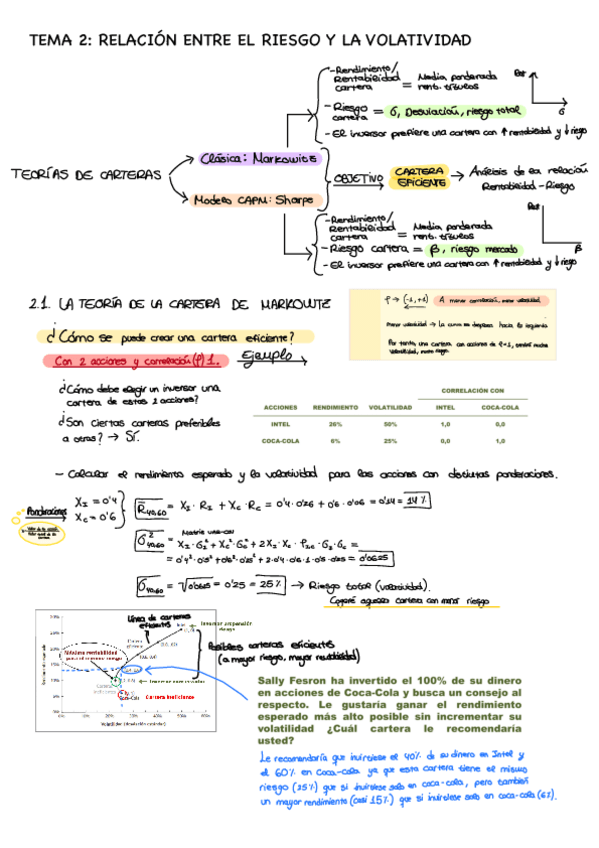 TEMA 2: RELACIÓN ENTRE EL RIESGO Y LA VOLATIVIDAD
- Rendimiento/
Rentabilidad = Media ponderada
cartera rent. títulos
- Riesgo = σ, Desviación, riesgo total
cartera
- El inversor prefiere una cartera con ↑ rentabilidad y ↓ riesgo
Rent
σ
TEORÍAS DE CARTERAS
Clásica: Markowitz
Modelo CAPM: Sharpe
OBJETIVO
CARTERA
EFICIENTE
Análisis de la relación
Rentabilidad - Riesgo
- Rendimiento/
Rentabilidad = Media ponderada
cartera rent. títulos
- Riesgo cartera = β, riesgo mercado
- El inversor prefiere una cartera con ↑ rentabilidad y ↓ riesgo
β
2.1. LA TEORÍA DE LA CARTERA DE MARKOWITZ
ρ → (-1, +1) A menor correlación, menor volatilidad
menor volatilidad → La curva se desplaza hacia la izquierda
Por tanto, una cartera con acciones de
¿Cómo se puede crear una cartera eficiente?
Con 2 acciones y correlación (ρ) 1. Ejemplo
¿Cómo debe elegir un inversor una
cartera de estas 2 acciones?
¿Son ciertas carteras preferibles
a otras? → Sí.
CORRELACIÓN CON
ACCIONES RENDIMIENTO VOLATILIDAD INTEL COCA-COLA
INTEL 26% 50% 1,0 0,0
COCA-COLA 6% 25% 0,0 1,0
- Calcular el rendimiento esperado y la volatividad para las acciones con distintas ponderaciones.
Ponderaciones
X_I = 0'4
X_C = 0'6
R̄_40,60 = X_I · R_I + X_C · R_C = 0'4 · 0'26 + 0'6 · 0'06 = 0'14 = 14%
σ²_40,60 = X_I² · σ_I² + X_C² · σ_C² + 2 X_I · X_C · ρ_IC · σ_I · σ_C =
= 0'0625
σ_40,60 = √0'0625 = 0'25 = 25% → Riesgo total (volatividad).
Cogeré aquella cartera con menor riesgo
Línea de carteras
eficientes
Máxima rentabilidad
Coca-Cola
Cartera ineficiente
Volatilidad (desviación estándar)
0% 10% 20% 30% 40% 50% 60%
Posibles carteras eficientes
(a mayor riesgo, mayor rentabilidad)
Sally Fesron ha invertido el 100% de su dinero
en acciones de Coca-Cola y busca un consejo al
respecto. Le gustaría ganar el rendimiento
esperado más alto posible sin incrementar su
volatilidad ¿Cuál cartera le recomendaría
usted?
Le recomendaría que invirtiese el 40% de su dinero en Intel y
el 60% en Coca-cola ya que esta cartera tiene el mismo
riesgo (25%) que si invirtiese solo en coca-cola, pero también
un mayor rendimiento (casi 15%) que si invirtiese solo en coca-cola (6%).